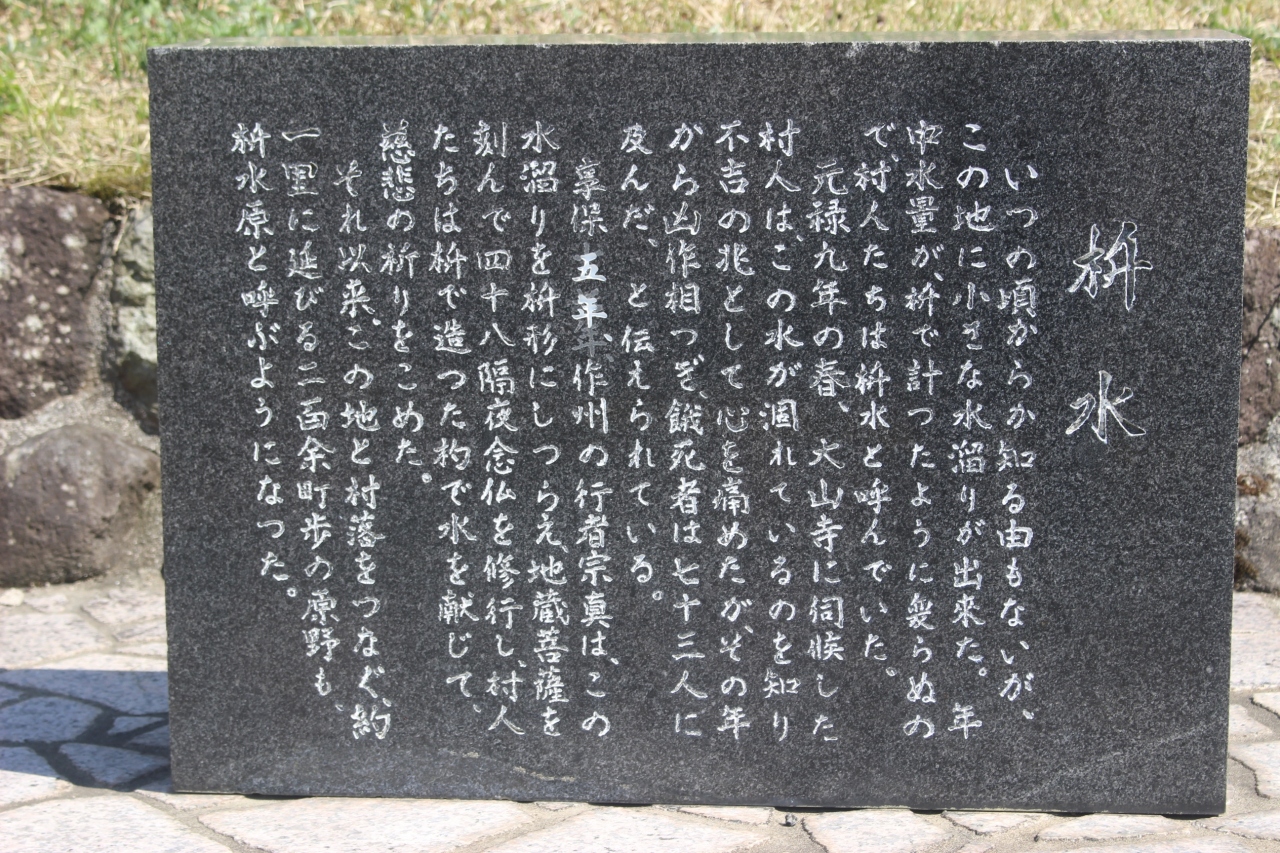 枡水
いつの頃からか知る由もないが、
この地に小さな水溜りが出来た。年
中水量が、枡で計つたように変らぬの
で、村人たちは枡水と呼んでいた。
元禄九年の春、大山寺に伺候した
村人は、この水が涸れているのを知り
不吉の兆として心を痛めたが、その年
から凶作相つぎ、餓死者は七十三人に
及んだ、と伝えられている。
享保五年、作州の行者宗真は、この
水溜りを枡形にしつらえ、地蔵菩薩を
刻んで四十八隔夜念仏を修行し、村人
たちは枡で造つた杓で水を献じて、
慈悲の祈りをこめた。
それ以来、この地と村落をつなぐ、約
一里に延びる二百余町歩の原野も、
枡水原と呼ぶようになつた。